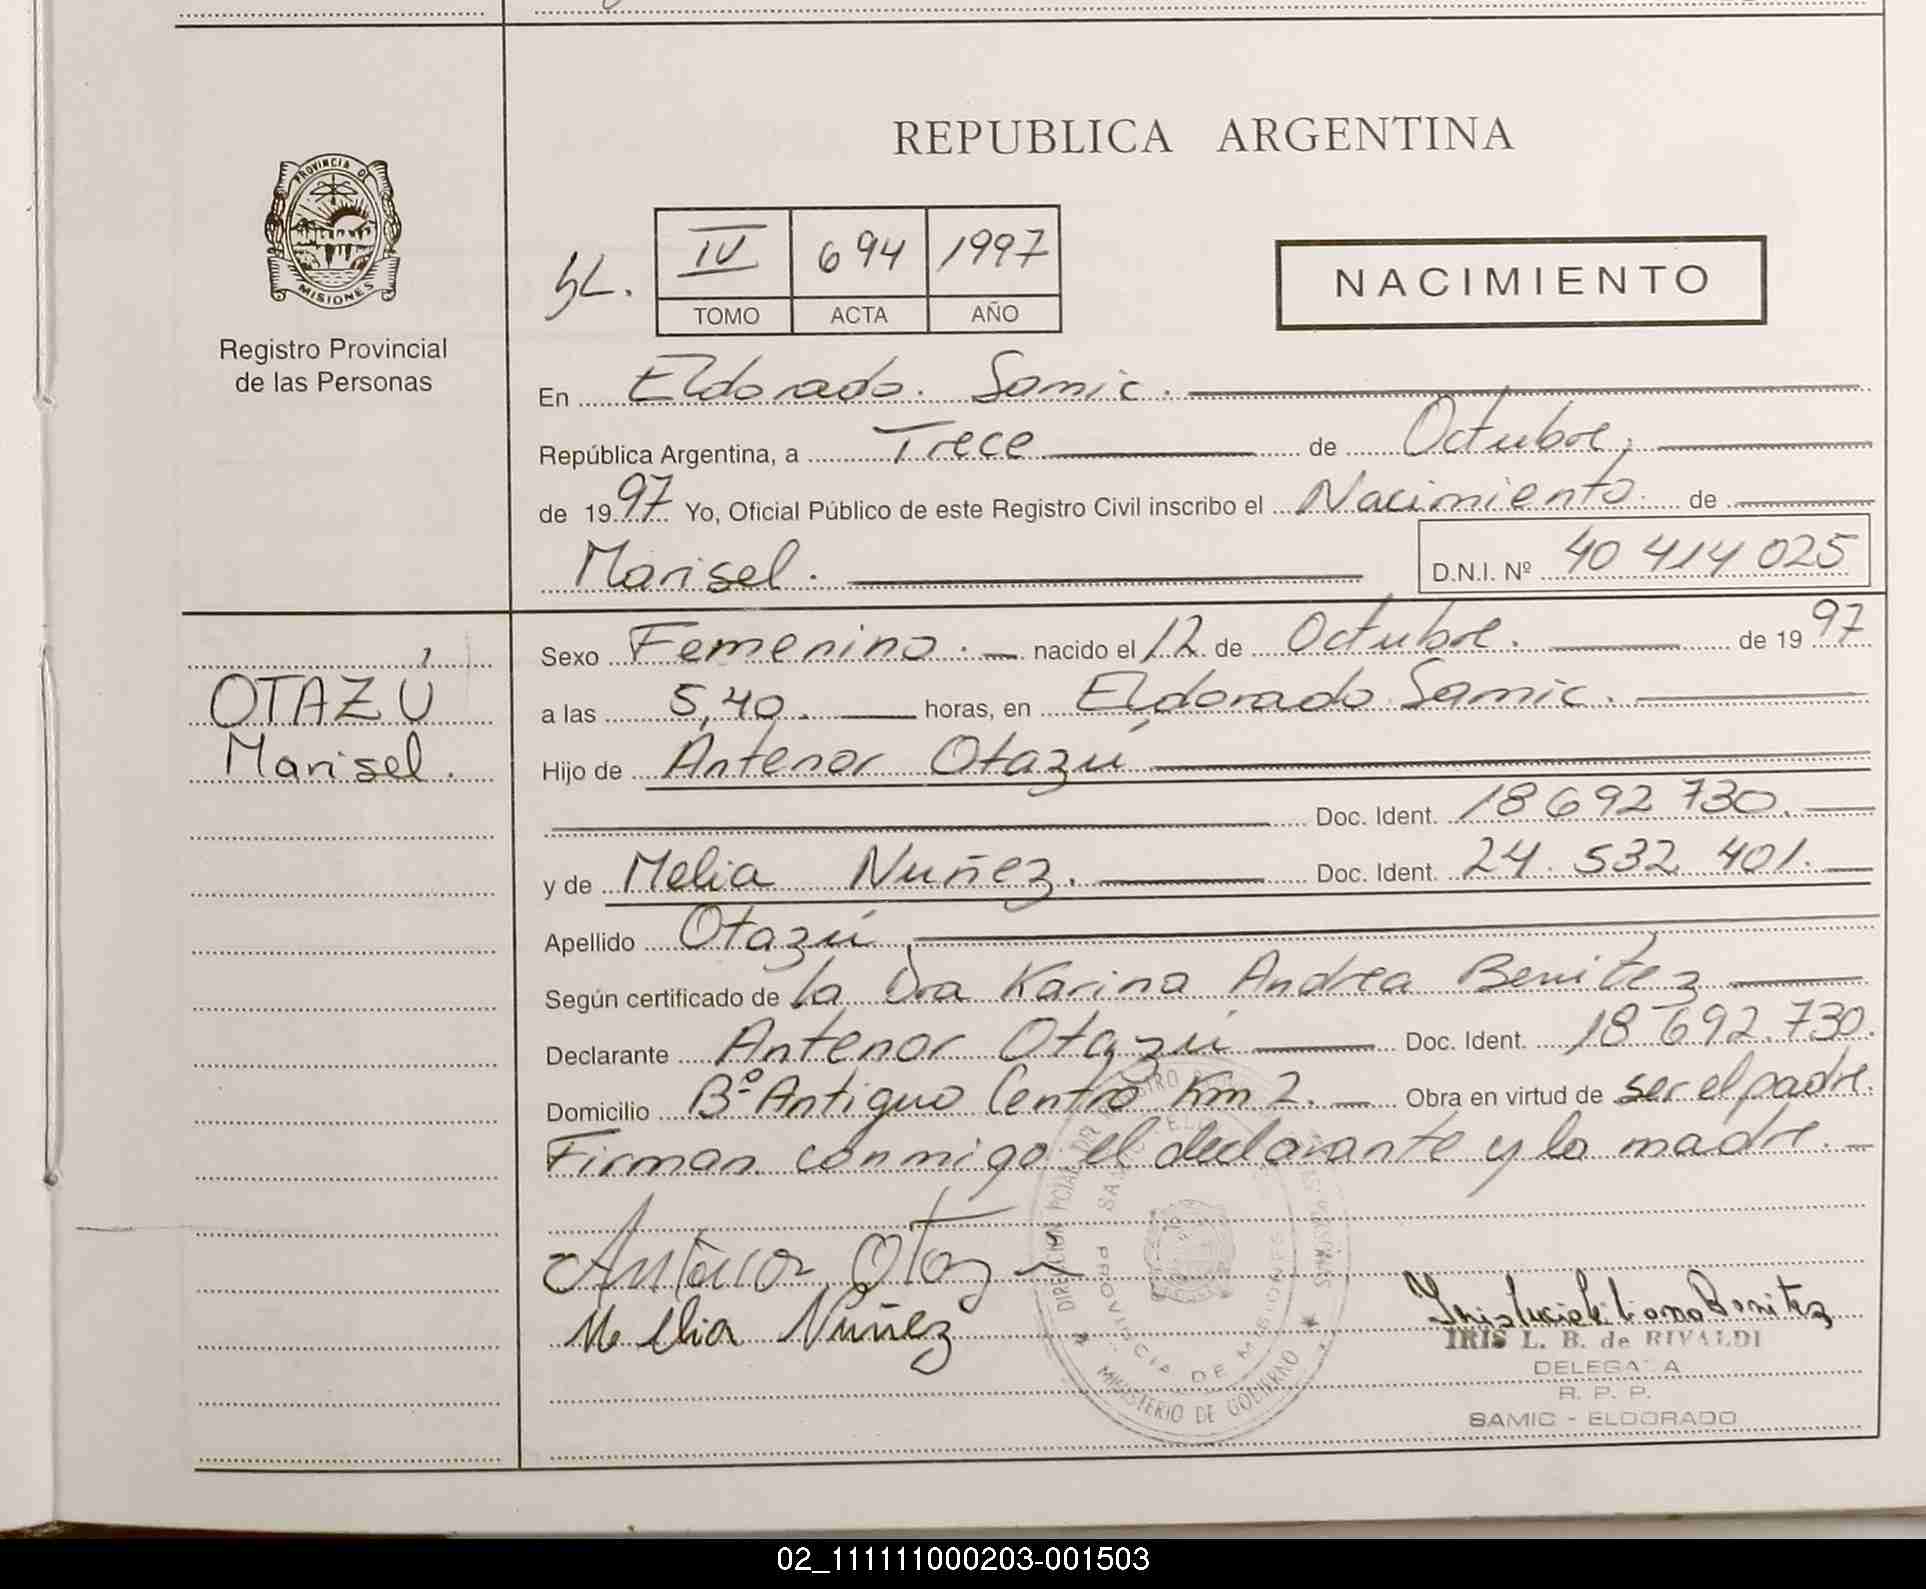 REPUBLICA ARGENTINA
PROVINCIA DE
MISIONES
Registro Provincial
de las Personas
IV 694 1997
TOMO ACTA AÑO
NACIMIENTO
En Eldorado. Samic.
República Argentina, a Trece de Octubre.
de 1997 Yo, Oficial Público de este Registro Civil inscribo el Nacimiento. de
Marisel. D.N.I. Nº 40 414 025
OTAZÚ
Marisel.
Sexo Femenino. nacido el 12 de Octubre. de 1997
a las 5,40. horas, en Eldorado Samic.
Hijo de Antenor Otazú
Doc. Ident. 18 692 730.
y de Melia Nuñez. Doc. Ident. 24. 532 401.
Apellido Otazú
Según certificado de la Dra Karina Andrea Benitez
Declarante Antenor Otazú Doc. Ident. 18 692.730.
Domicilio Bº Antiguo Centro Km 2. Obra en virtud de ser el padre.
Firman conmigo el declarante y la madre.
Melia Nuñez
IRIS L. B. de RIVALDI
DELEGADA
R. P. P.
SAMIC - ELDORADO
PROVINCIA DE MISIONES
MINISTERIO DE GOBIERNO
02_111111000203-001503